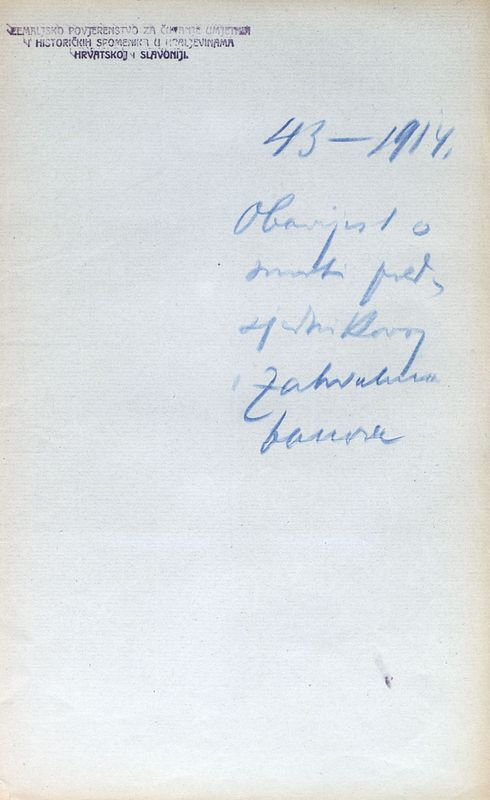 ZEMALJSKO POVJERENSTVO ZA ČUVANJE UMJETNIH
I HISTORIČKIH SPOMENIKA U KRALJEVINAMA
HRVATSKOJ I SLAVONIJI.
43 — 1914.
Obavijest o
smrti pred,
sjednikovoj
i Zahvalnica
banova